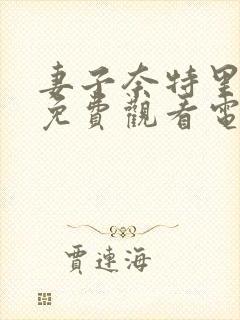 妻子奈特里
免費觀看電
賈連海